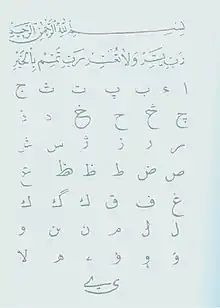 بسم الله الرحمن الرحيم
رب يسر ولا تعسر رب تمم بالخير
ا ء ب پ ت ث ج
چ څ ح خ د ذ
ر ز ژ س ش
ص ض ط ظ ع
غ ف ق ك گ ك
ل م ن ن و
و ء ه لا
ى ے